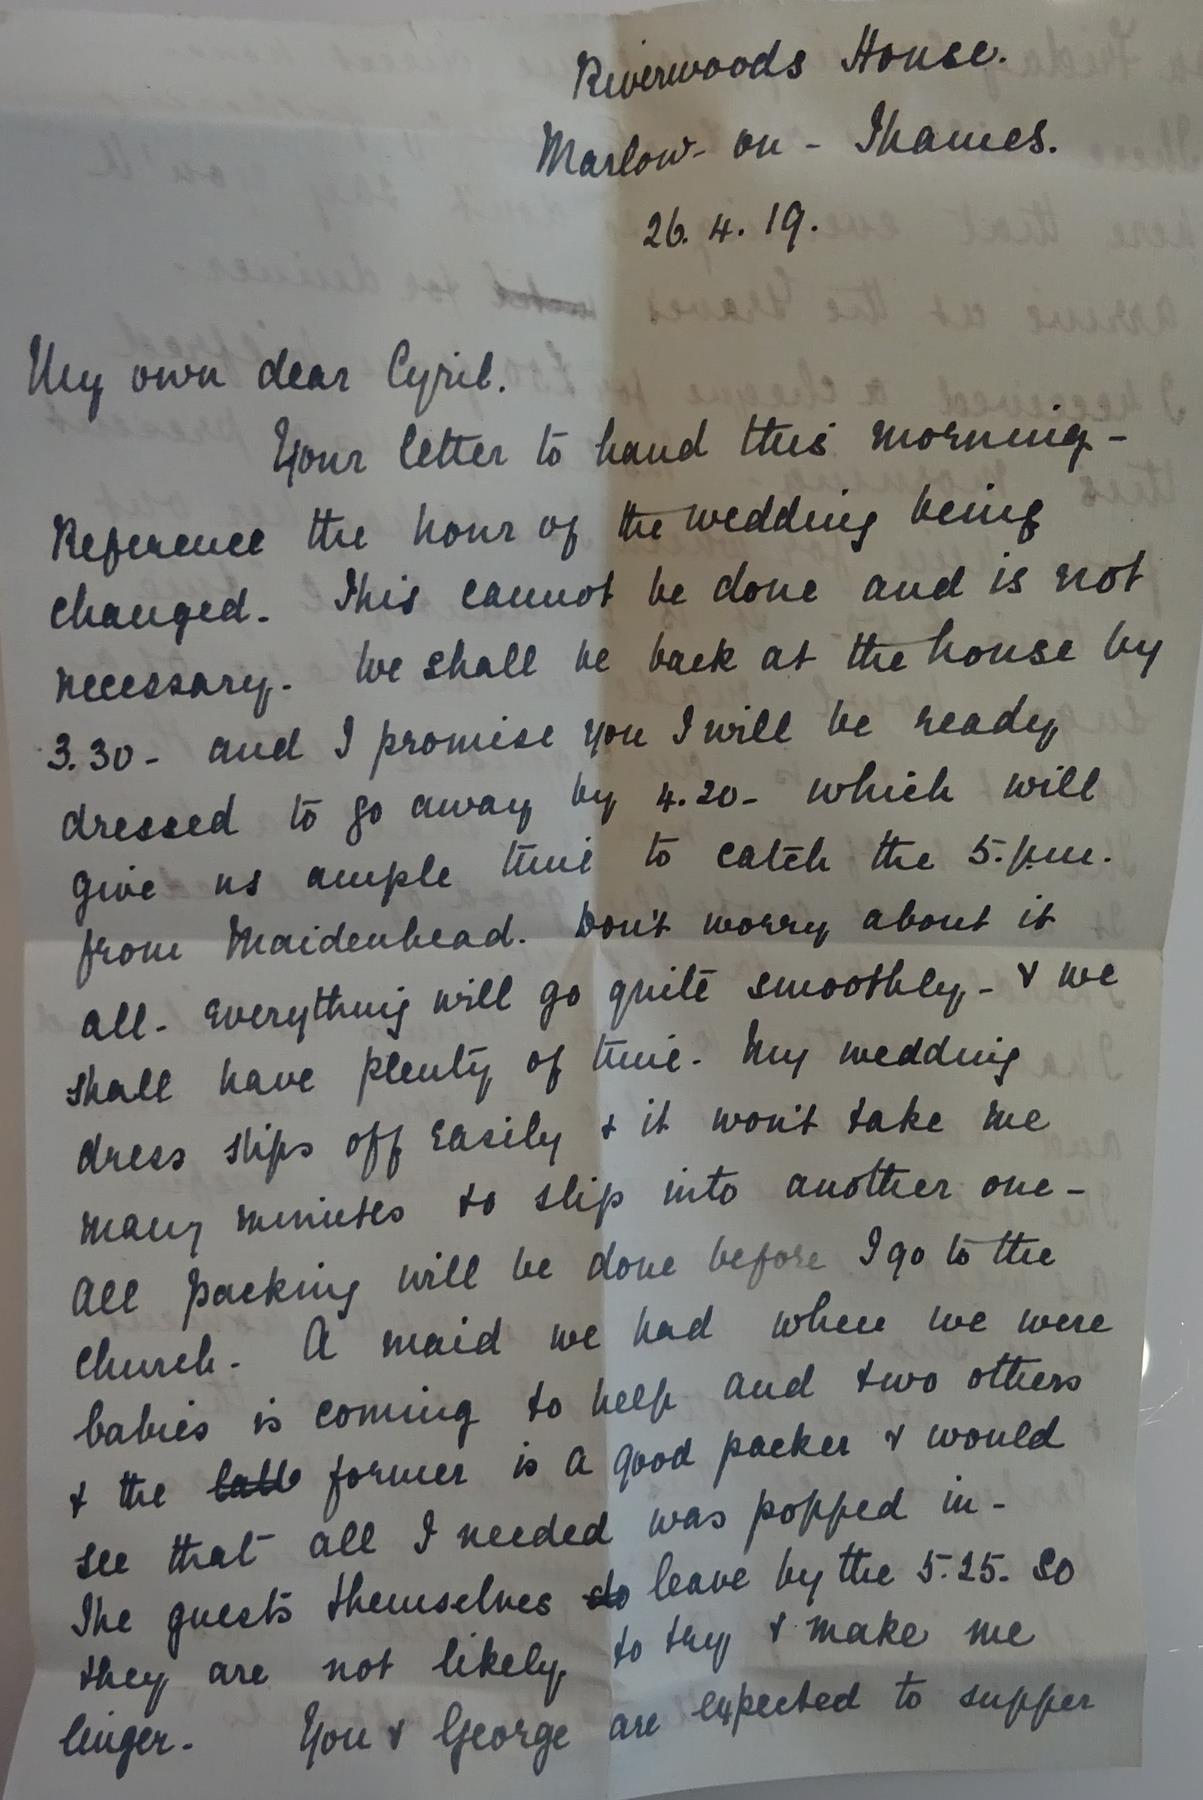 Riverwoods House.
Marlow-on-Thames.
26.4.19.
My own dear Cyril.
Your letter to hand this morning-
Reference the hour of the wedding being
changed. This cannot be done and is not
necessary. We shall be back at the house by
3.30 - and I promise you I will be ready
dressed to go away by 4.20 - which will
give us ample time to catch the 5.pm.
from Maidenhead. Don't worry about it
all - Everything will go quite smoothly, - & we
shall have plenty of time. My wedding
dress slips off easily & it won't take me
many minutes to slip into another one -
All packing will be done before I go to the
church. A maid we had when we were
babies is coming to help and two others
& the former is a good packer & would
see that all I needed was popped in -
The guests themselves leave by the 5.25. So
they are not likely to try & make me
linger. You & George are expected to supper